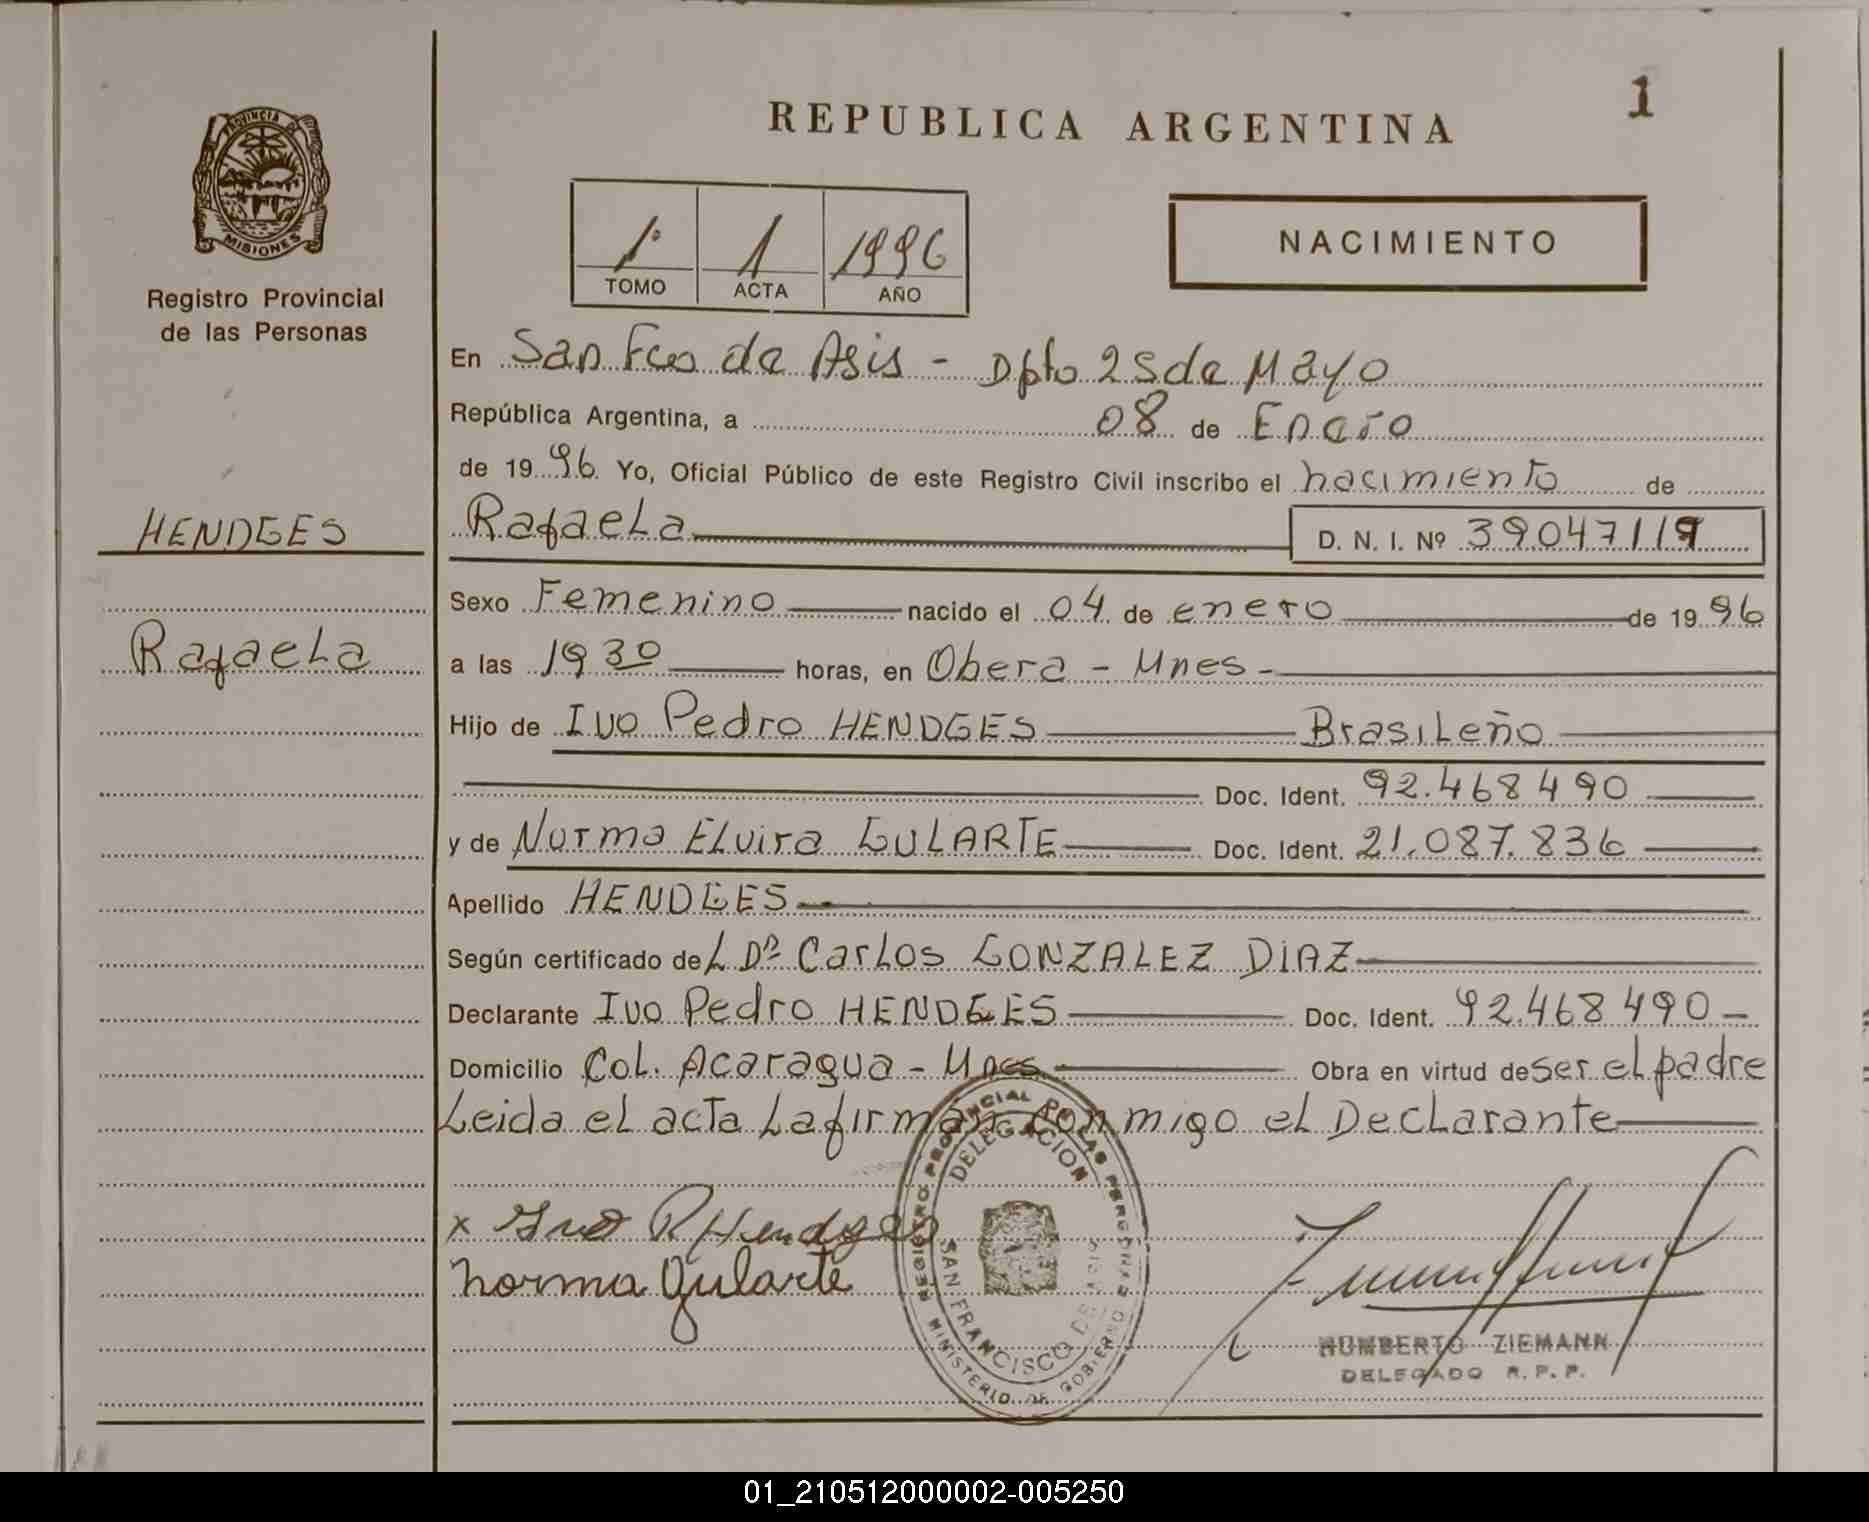 REPUBLICA ARGENTINA
1
PROVINCIA DE
MISIONES
Registro Provincial
de las Personas
1º 1 1996
TOMO ACTA AÑO
NACIMIENTO
En San Fco de Asis - Dpto 25 de Mayo
República Argentina, a 08 de Enero
de 19 96. Yo, Oficial Público de este Registro Civil inscribo el nacimiento de
HENDGES
Rafaela D. N. I. Nº 39047119
Sexo Femenino nacido el 04 de enero de 19 96
Rafaela
a las 19 30 horas, en Obera - Mnes -
Hijo de Ivo Pedro HENDGES Brasileño
Doc. Ident. 92.468490
y de Norma Elvira GULARTE Doc. Ident. 21.087.836
Apellido HENDGES
Según certificado del Dr Carlos GONZALEZ DIAZ
Declarante Ivo Pedro HENDGES Doc. Ident. 92.468490 -
Domicilio Col. Acaragua - Mnes Obra en virtud de ser el padre
Leida el acta La firman conmigo el Declarante
x Ivo P. Hendges
Norma Gularte
REGISTRO PROVINCIAL DE LAS PERSONAS
DELEGACION
SAN FRANCISCO DE ASIS
MINISTERIO DE GOBIERNO
HUMBERTO ZIEMANN
DELEGADO R. P. P.
01_210512000002-005250